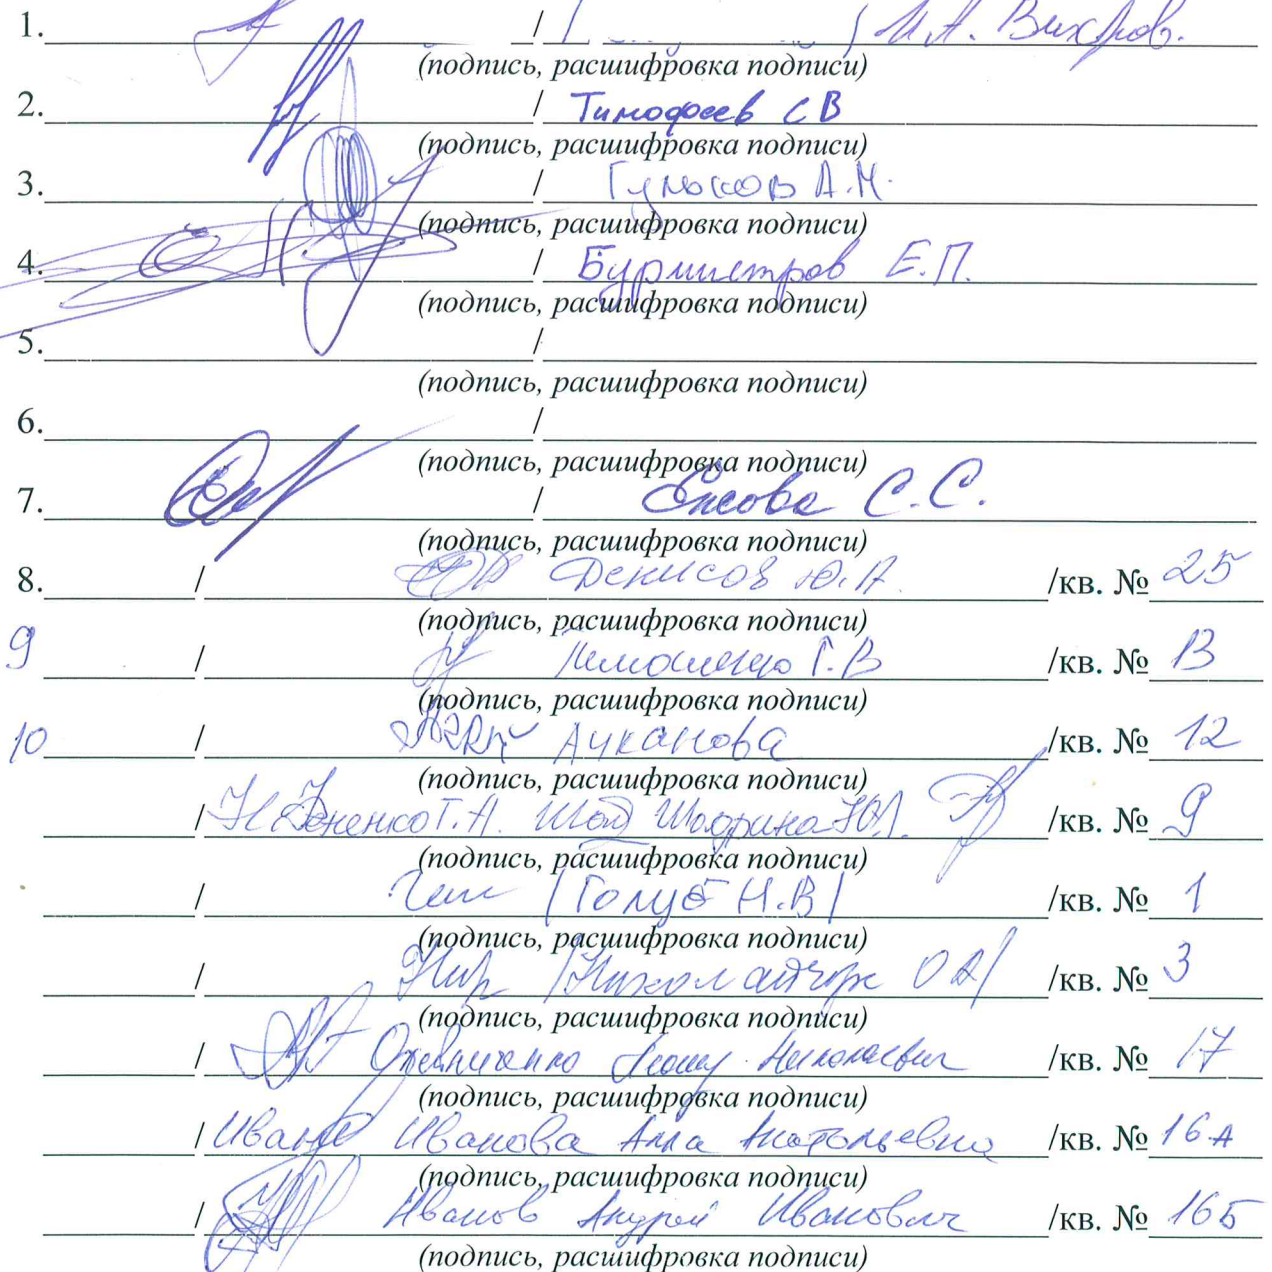 1. / И.А. Вихров.
(подпись, расшифровка подписи)
2. / Тимофеев С В
(подпись, расшифровка подписи)
3. / Гульков А.М.
(подпись, расшифровка подписи)
4. / Бурмистров Е.П.
(подпись, расшифровка подписи)
5. /
(подпись, расшифровка подписи)
6. /
(подпись, расшифровка подписи)
7. / С.С.
(подпись, расшифровка подписи)
8. / Денисов Ю.А. /кв. № 25
(подпись, расшифровка подписи)
9 / Тимошенко Г.В /кв. №
(подпись, расшифровка подписи)
10 / Ачканова /кв. № 12
(подпись, расшифровка подписи)
/ Т.А. Шадрина Ю.Л. /кв. № 9
(подпись, расшифровка подписи)
/ /Голуб Н.В/ /кв. № 1
(подпись, расшифровка подписи)
/ О А/ /кв. № 3
(подпись, расшифровка подписи)
/ Николаевич /кв. № 17
(подпись, расшифровка подписи)
/ Иванова Алла Анатольевна /кв. № 16А
(подпись, расшифровка подписи)
/ Иванов Андрей Иванович /кв. № 16Б
(подпись, расшифровка подписи)